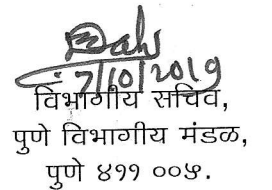 7/10/2019
विभागीय सचिव,
पुणे विभागीय मंडळ,
पुणे ४११ ००५.